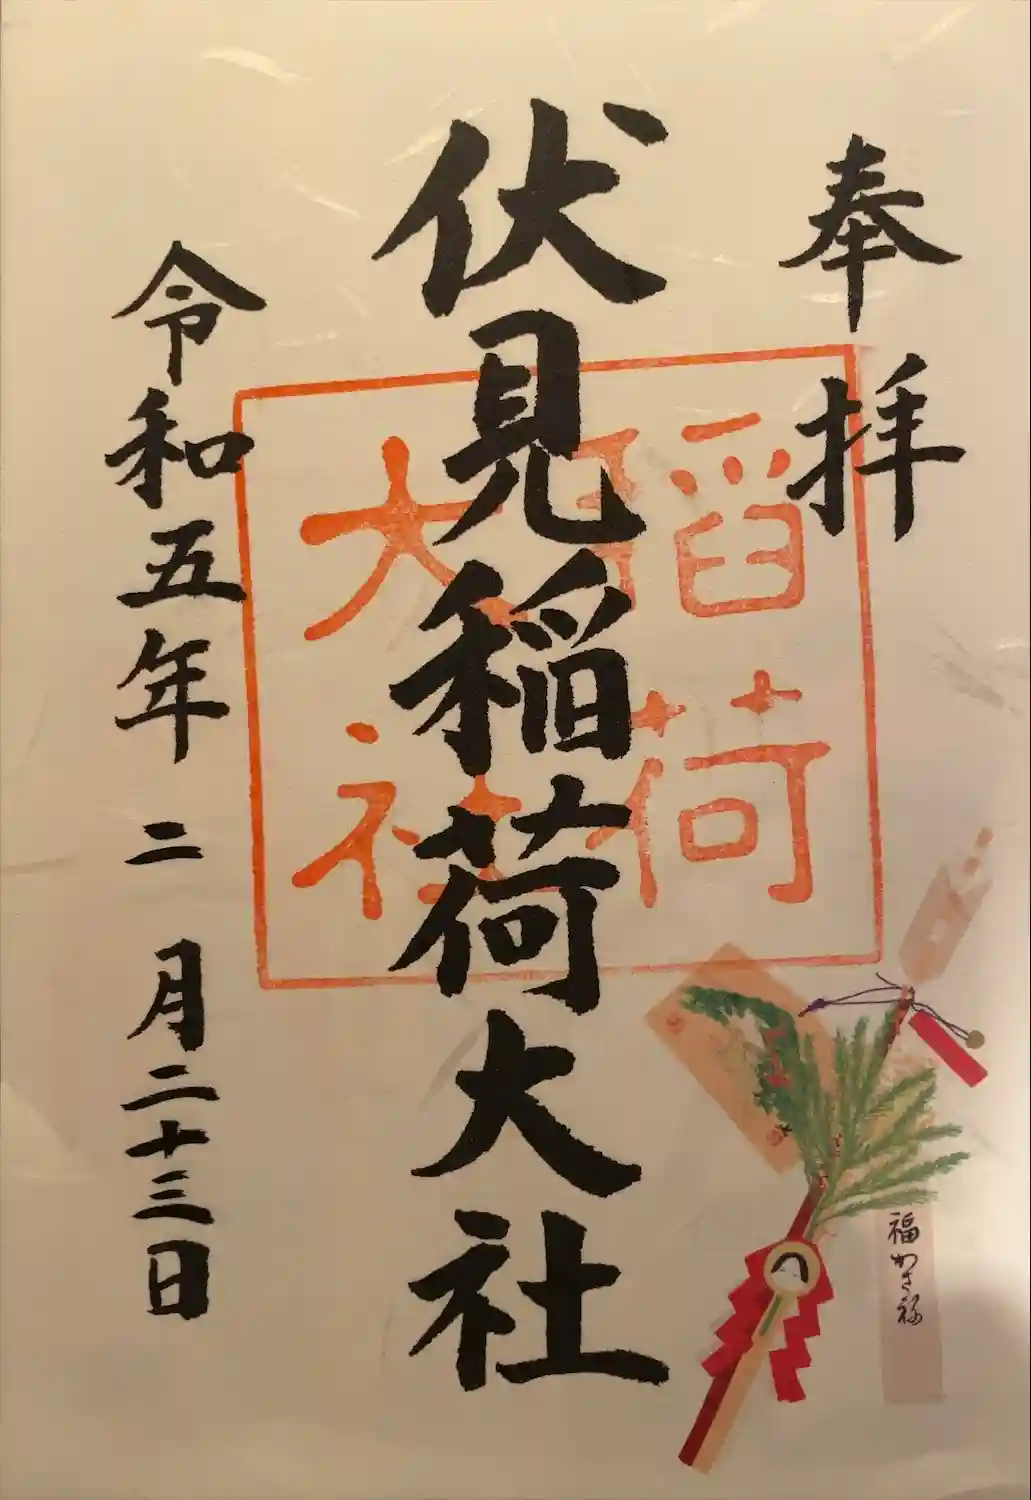 奉拝
伏見稲荷大社
稲荷
大社
令和五年二月二十三日
福かさね